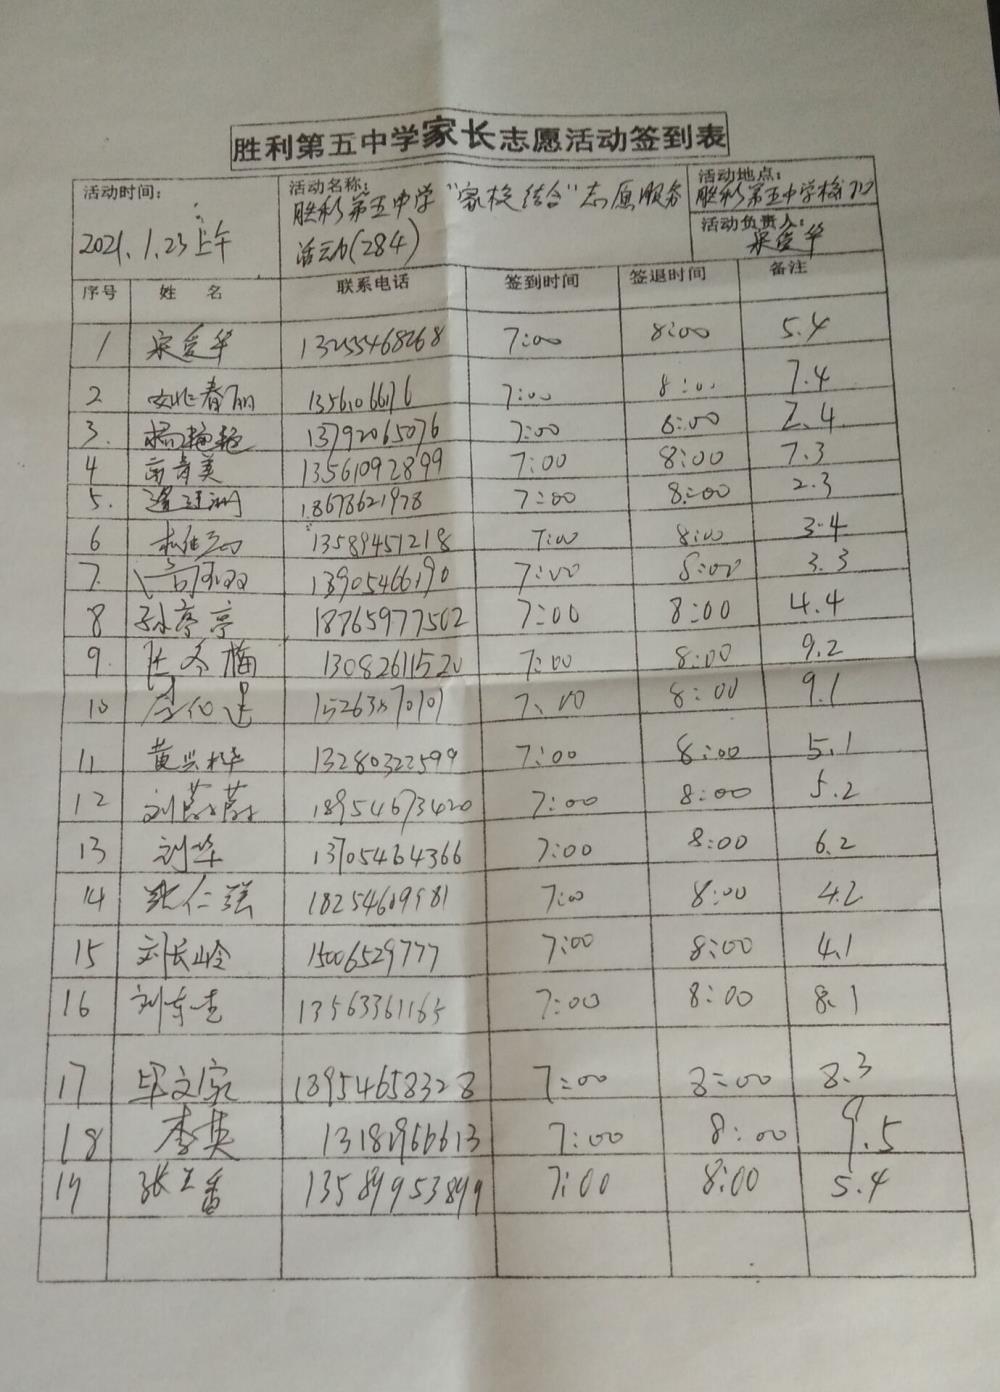 胜利第五中学家长志愿活动签到表
活动时间：
2021.1.23上午
活动名称：
胜利第五中学"家校结合"志愿服务
活动(284)
活动地点：
胜利第五中学校门口
活动负责人：
宋爱华
序号 姓 名 联系电话 签到时间 签退时间 备注
1 宋爱华 13255468268 7:00 8:00 5.4
2 姚春丽 7:00 8:00 7.4
3. 杨艳艳 13792065076 7:00 8:00 2.4
4 美 13561092899 7:00 8:00 7.3
5. 18678621978 7:00 8:00 2.3
6 13589451218 7:00 8:00 3.4
7. 13905466190 7:00 8:00 3.3
8 孙亭亭 18765977502 7:00 8:00 4.4
9. 梅 13082611520 7:00 8:00 9.2
10 7:00 8:00 9.1
11 黄兴华 13280322599 7:00 8:00 5.1
12 刘蔚蔚 18954673420 7:00 8:00 5.2
13 刘华 13705464366 7:00 8:00 6.2
14 张仁强 18254609981 7:00 8:00 4.2
15 刘长岭 15006529777 7:00 8:00 4.1
16 刘东 13563361165 7:00 8:00 8.1
17 毕文家 13954658328 7:00 8:00 8.3
18 李英 13181966613 7:00 8:00 9.5
19 张 香 13589953899 7:00 8:00 5.4